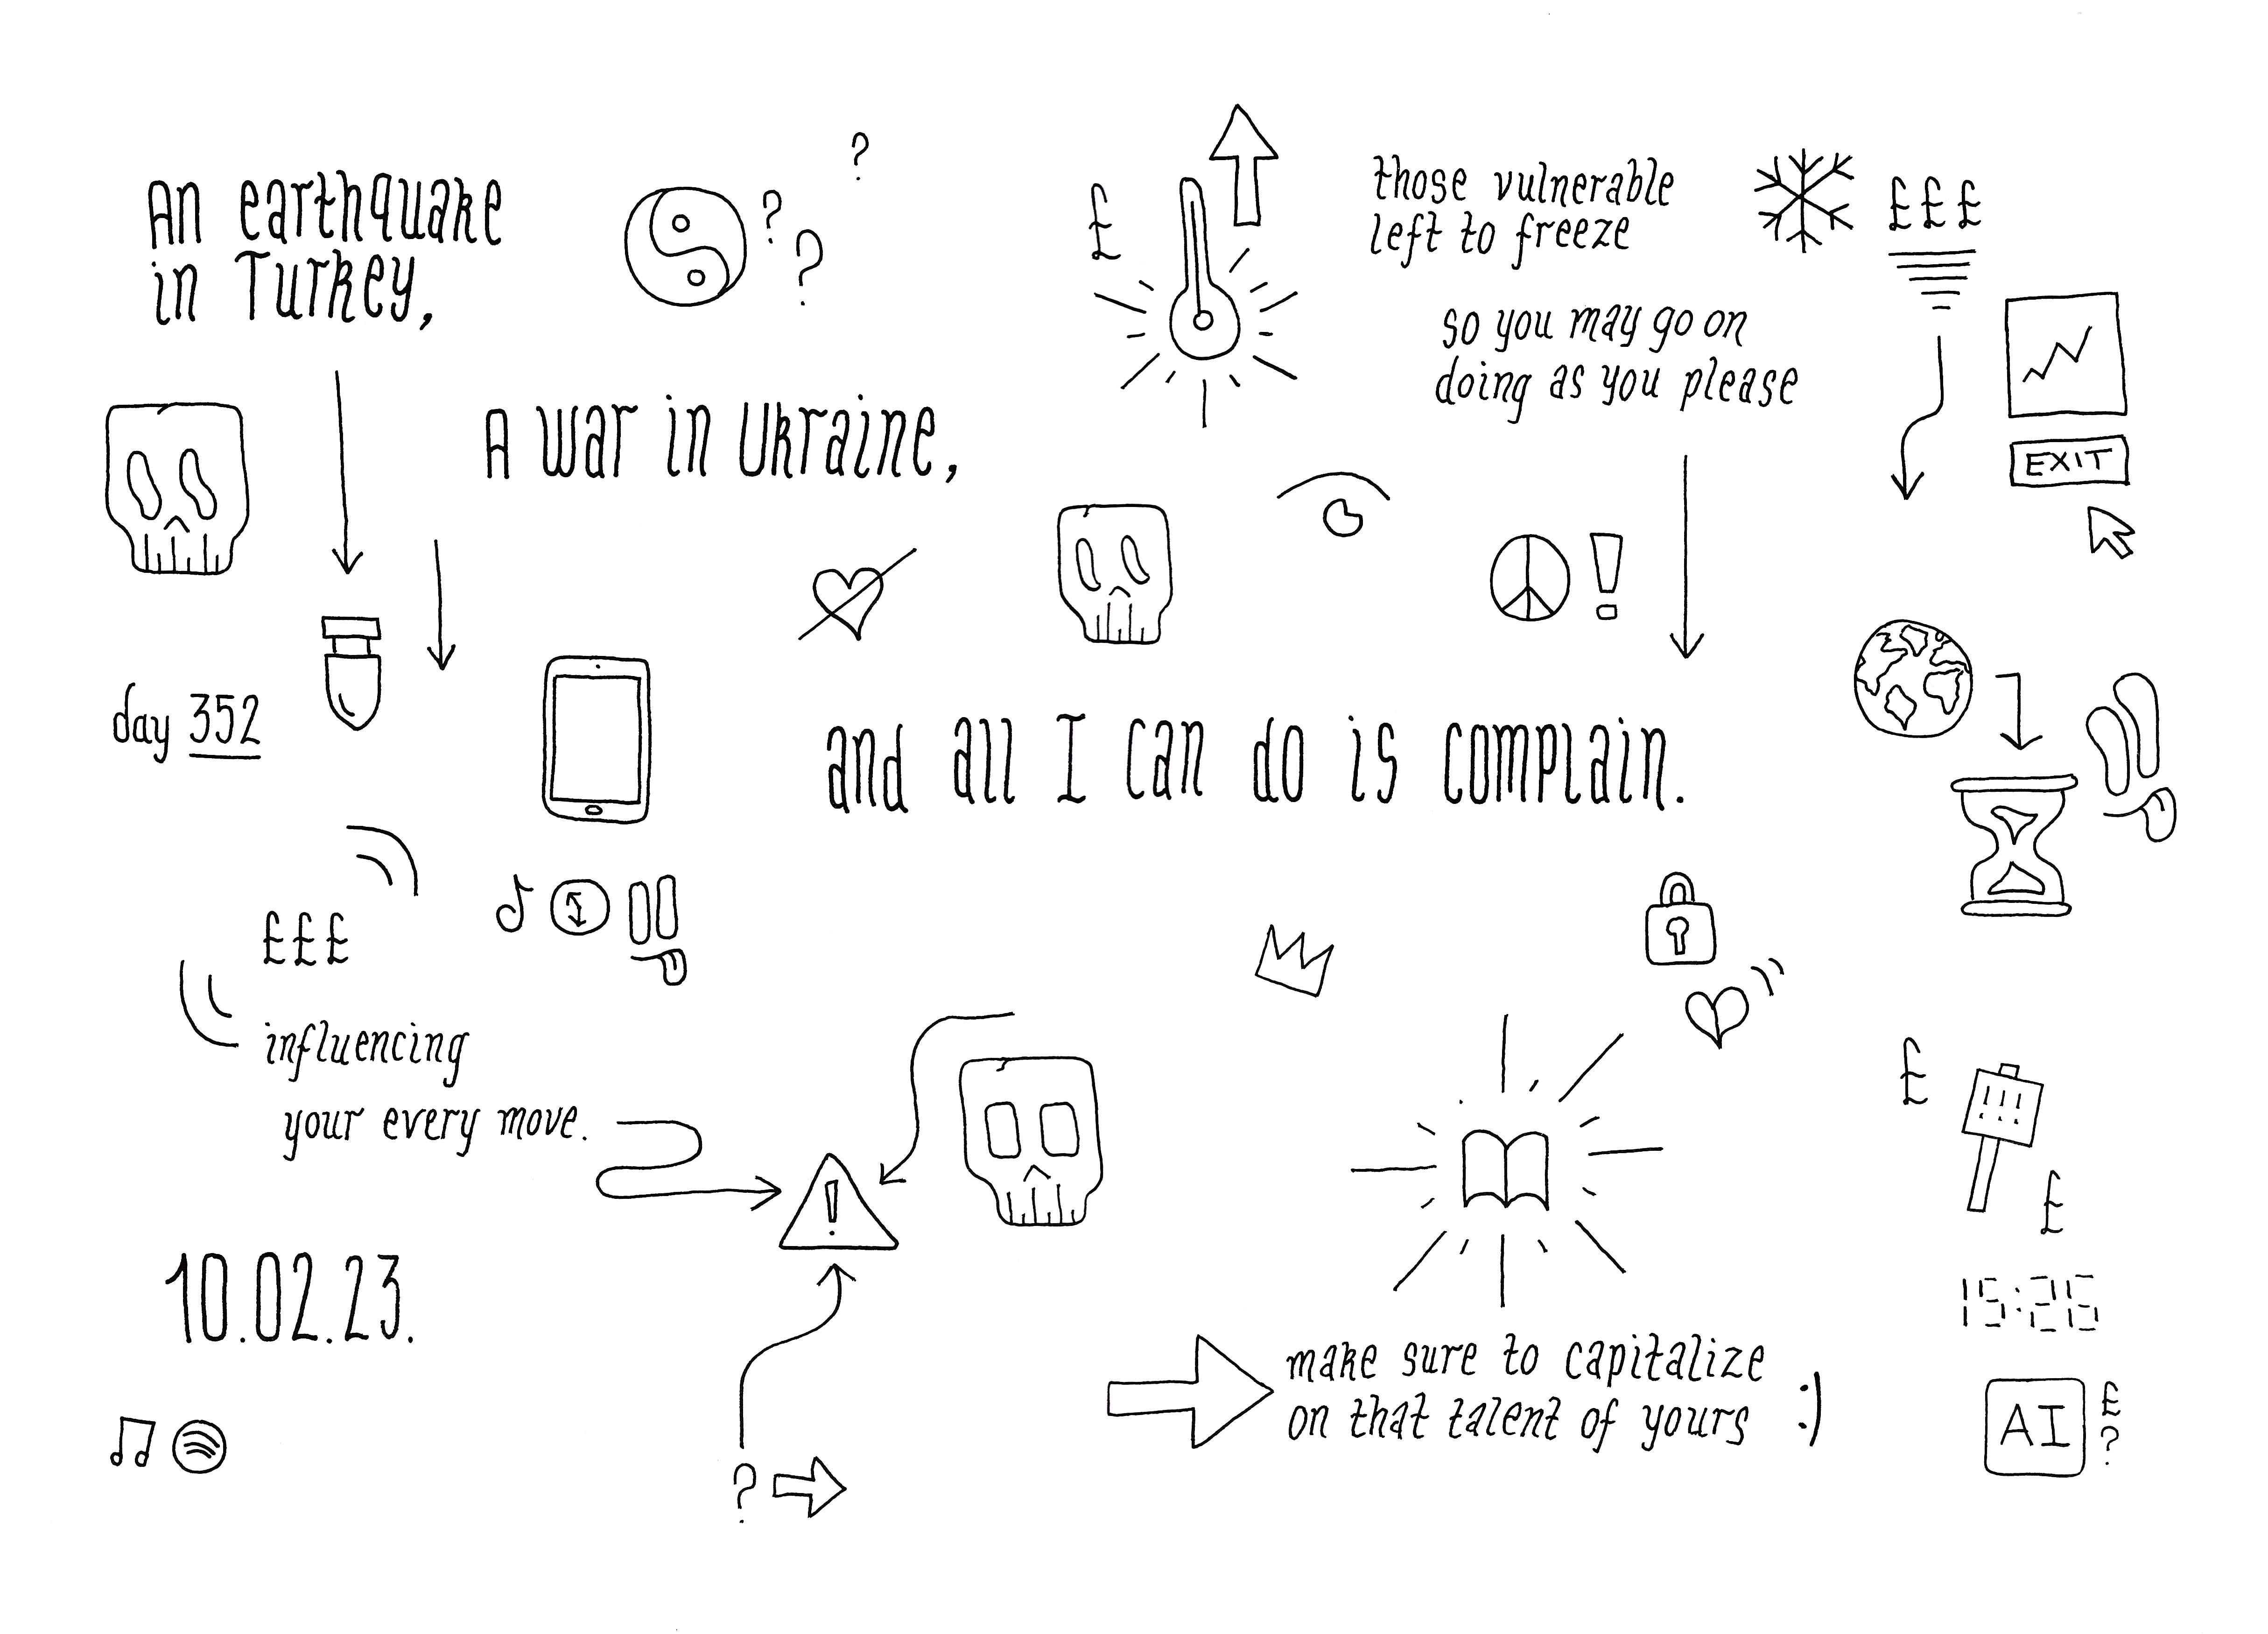 An earthquake
in Turkey,
? ? ?
£
those vulnerable
left to freeze
£££
so you may go on
doing as you please
EXIT
A war in Ukraine,
!
day 352
and all I can do is complain.
£££
influencing
your every move.
!
£
£
10.02.23.
15:25
make sure to capitalize
on that talent of yours :)
AI £
?
?